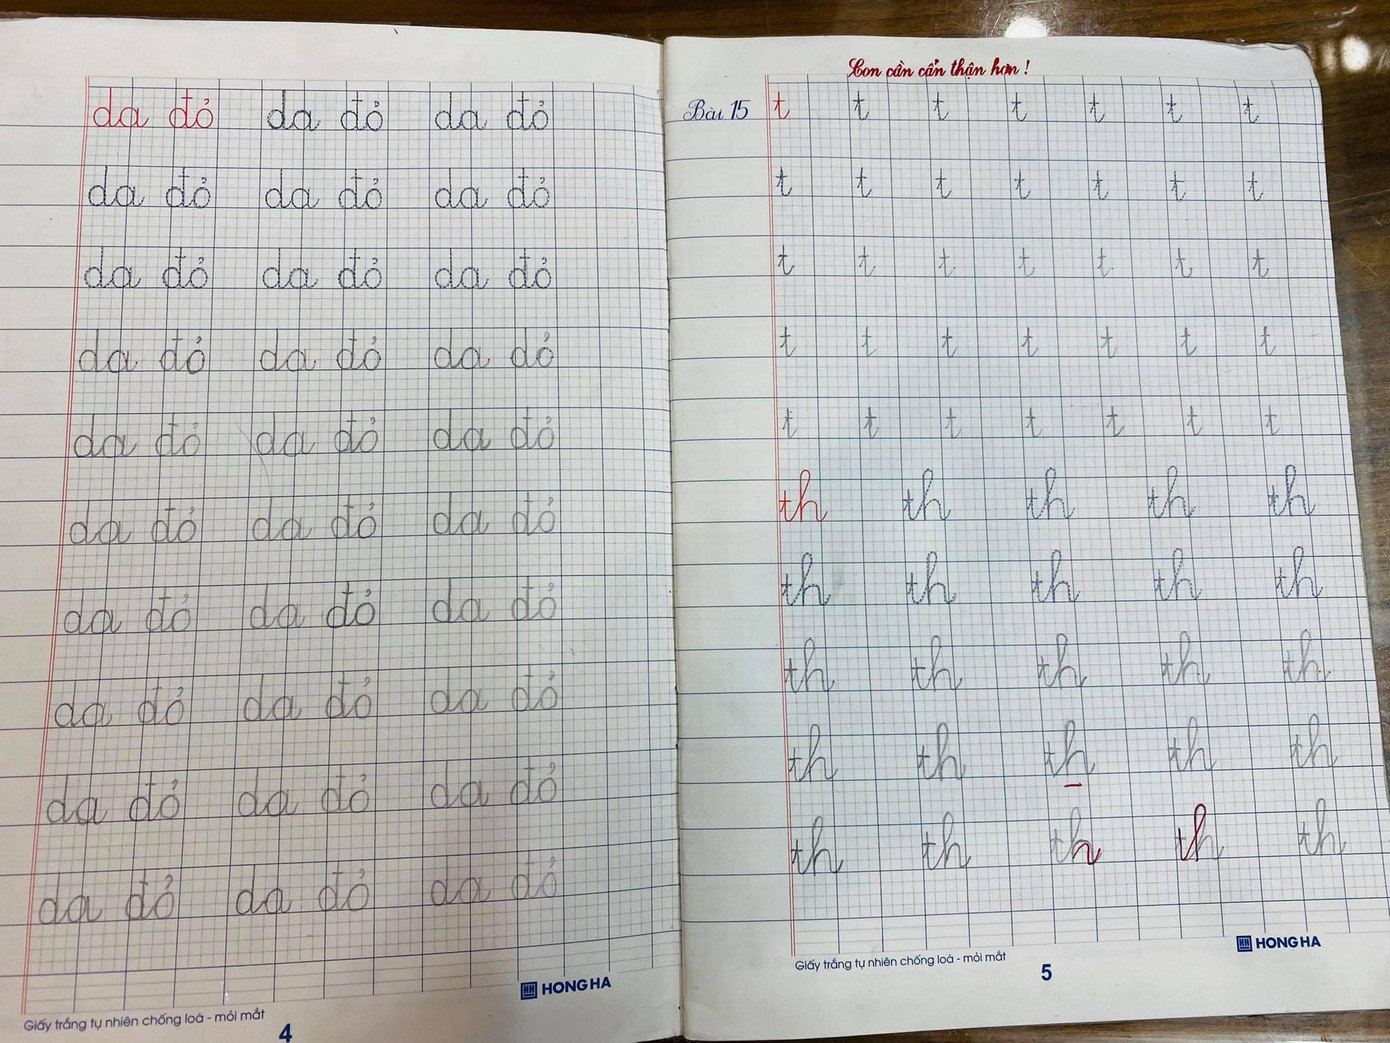 da đỏ da đỏ da đỏ
da đỏ da đỏ da đỏ
da đỏ da đỏ da đỏ
da đỏ da đỏ da đỏ
da đỏ da đỏ da đỏ
da đỏ da đỏ da đỏ
da đỏ da đỏ da đỏ
da đỏ da đỏ da đỏ
da đỏ da đỏ da đỏ
da đỏ da đỏ da đỏ
HONG HA
Giấy trắng tự nhiên chống loá - mỏi mắt
4
Con cần cẩn thận hơn !
Bài 15 t t t t t t t
t t t t t t t
t t t t t t t
t t t t t t t
t t t t t t t
th th th th th
th th th th th
th th th th th
th th th th th
th th th th th
HONG HA
Giấy trắng tự nhiên chống loá - mỏi mắt
5